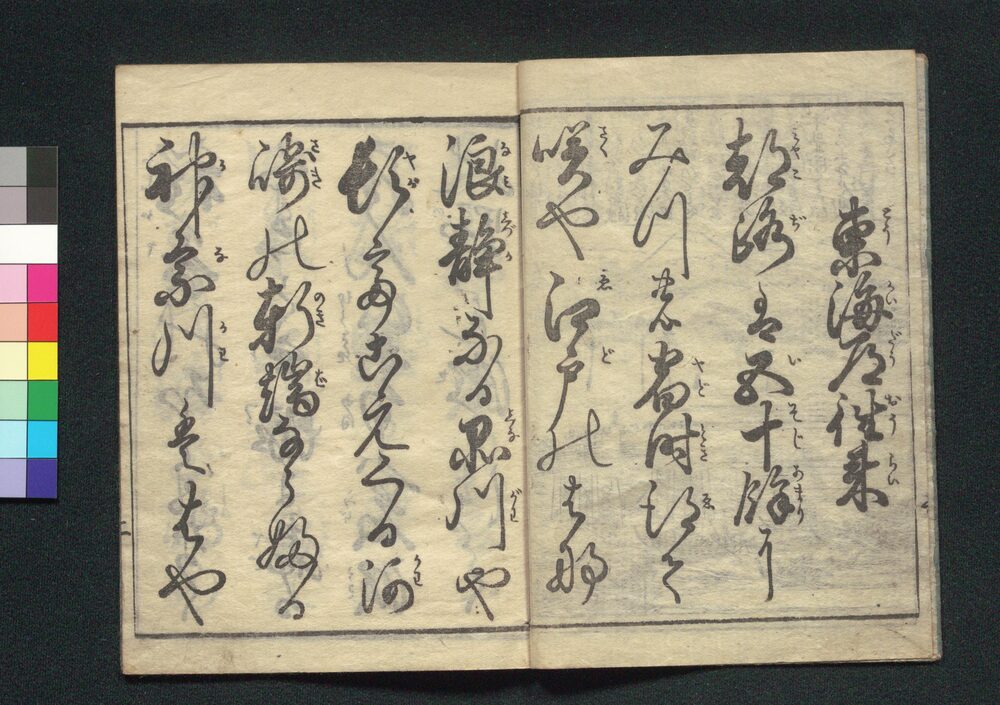 東海道往来
都路は五十餘に
みつの宿時得て
咲や江戸のはな
浪静なる品川や
頓てこえくる河
崎の軒端ならぶる
神奈川ははや